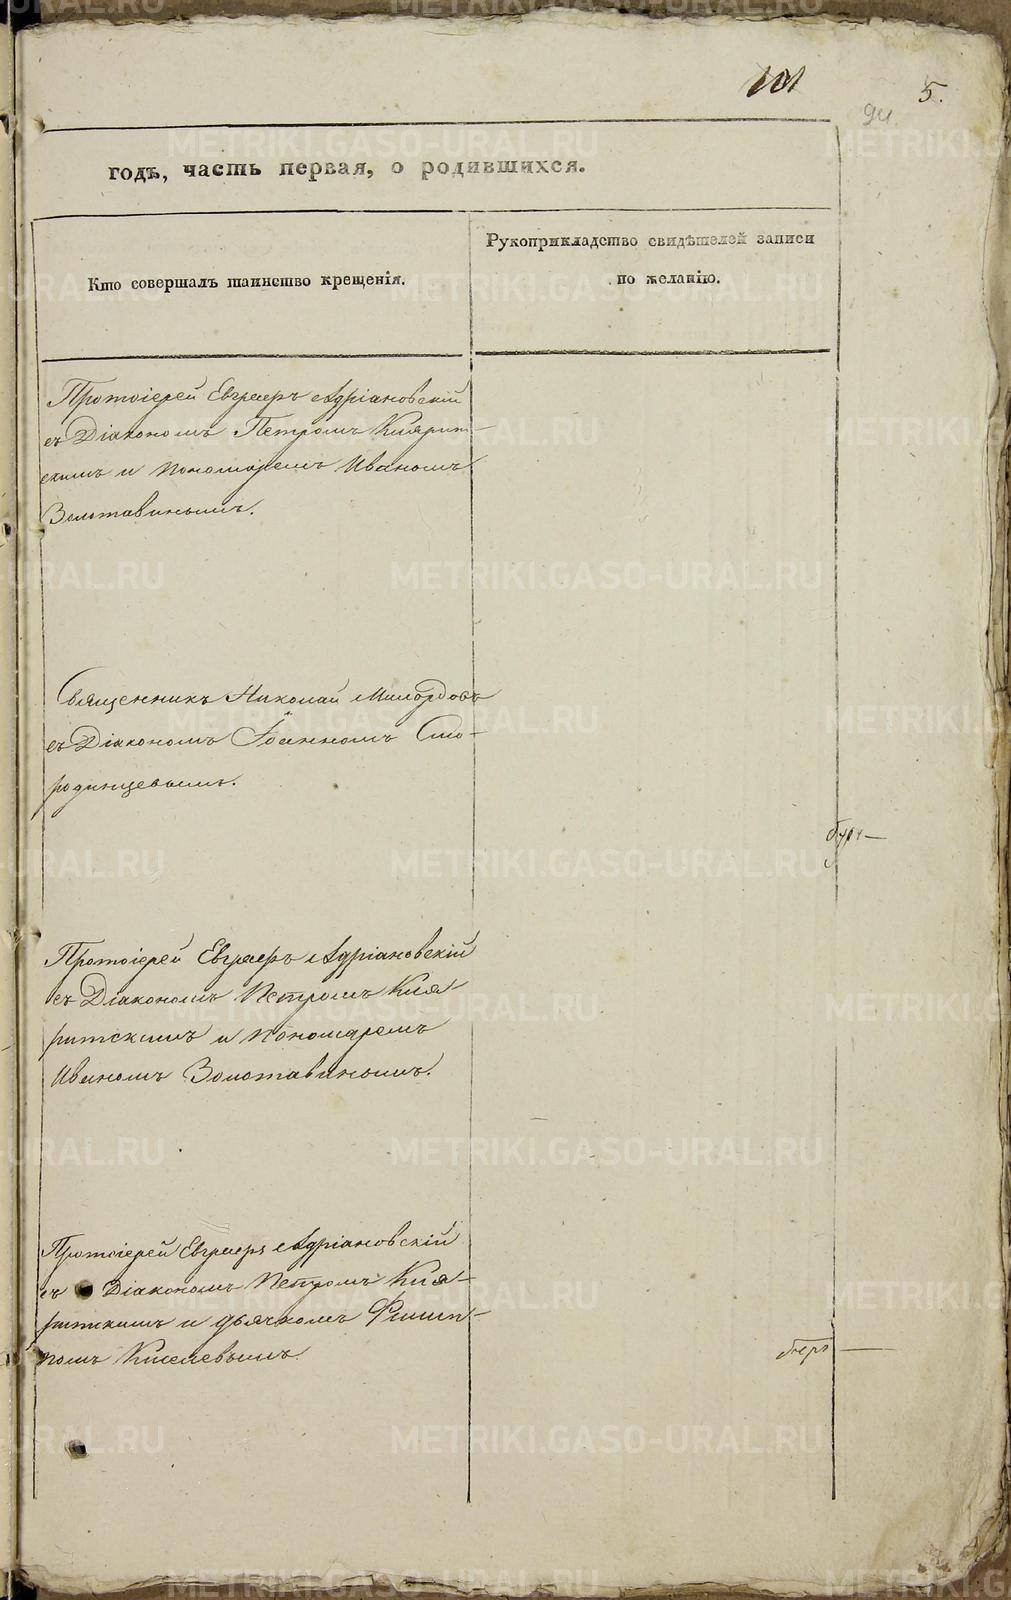 101
5.
94
годъ, часть первая, о родившихся.
Кто совершалъ таинство крещенія.
Рукоприкладство свидѣтелей записи
по желанію.
Протоіерей Евграфъ Адріановскій
съ Діакономъ Петромъ Киярит-
скимъ и пономаремъ Иваномъ
Золотавинымъ.
Священникъ Николай Милордовъ
съ Діакономъ Іоанномъ Смо-
родинцевымъ.
Протоіерей Евграфъ Адріановскій
съ Діакономъ Петромъ Кия-
ритскимъ и пономаремъ
Иваномъ Золотавинымъ.
Протоіерей Евграфъ Адріановскій
съ Діакономъ Петромъ Кия-
ритскимъ и дьячкомъ Филип-
помъ Киселевымъ.
METRIKI.GASO-URAL.RU